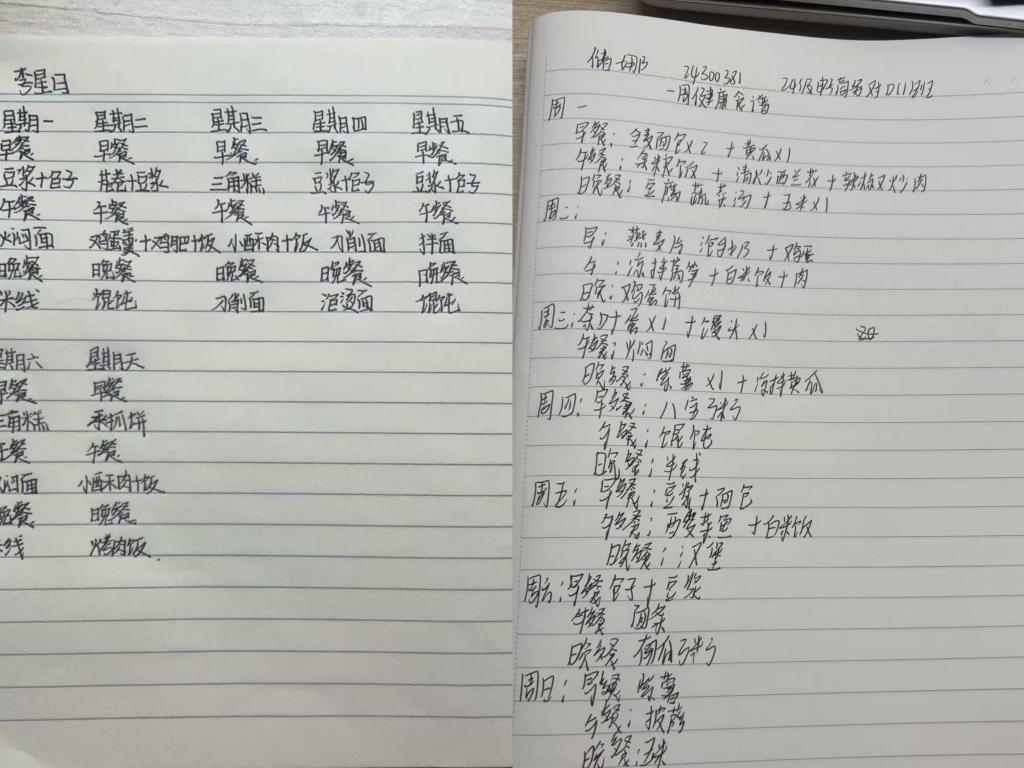 李星日
星期一 星期二 星期三 星期四 星期五
早餐 早餐 早餐 早餐 早餐
豆浆+包子 花卷+豆浆 三角糕 豆浆+包子 豆浆+包子
午餐 午餐 午餐 午餐 午餐
焖面 鸡蛋羹+鸡肥+饭 小酥肉+饭 刀削面 拌面
晚餐 晚餐 晚餐 晚餐 晚餐
米线 馄饨 刀削面 泡烫面 馄饨
星期六 星期天
早餐 早餐
三角糕 手抓饼
午餐 午餐
焖面 小酥肉+饭
晚餐 晚餐
米线 烤肉饭
储娜 24300381 24级电商对口1班
一周健康食谱
周一
早餐：全麦面包x2 +黄瓜x1
午餐：杂粮饭 + 清炒西兰花 + 辣椒炒肉
晚餐：豆腐蔬菜汤+玉米x1
周二：
早：燕麦片 泡牛奶 +鸡蛋
午：凉拌莴笋+白米饭+肉
晚：鸡蛋饼
周三：茶叶蛋x1 +馒头x1
午餐：焖面
晚餐：紫薯x1+凉拌黄瓜
周四：早餐：八宝粥
午餐：馄饨
晚餐：米线
周五：早餐：豆浆+面包
午餐：酸菜鱼+白米饭
晚餐：汉堡
周六：早餐 包子+豆浆
午餐 面条
晚餐 南瓜粥
周日：早餐 紫薯
午餐：披萨
晚餐：玉米